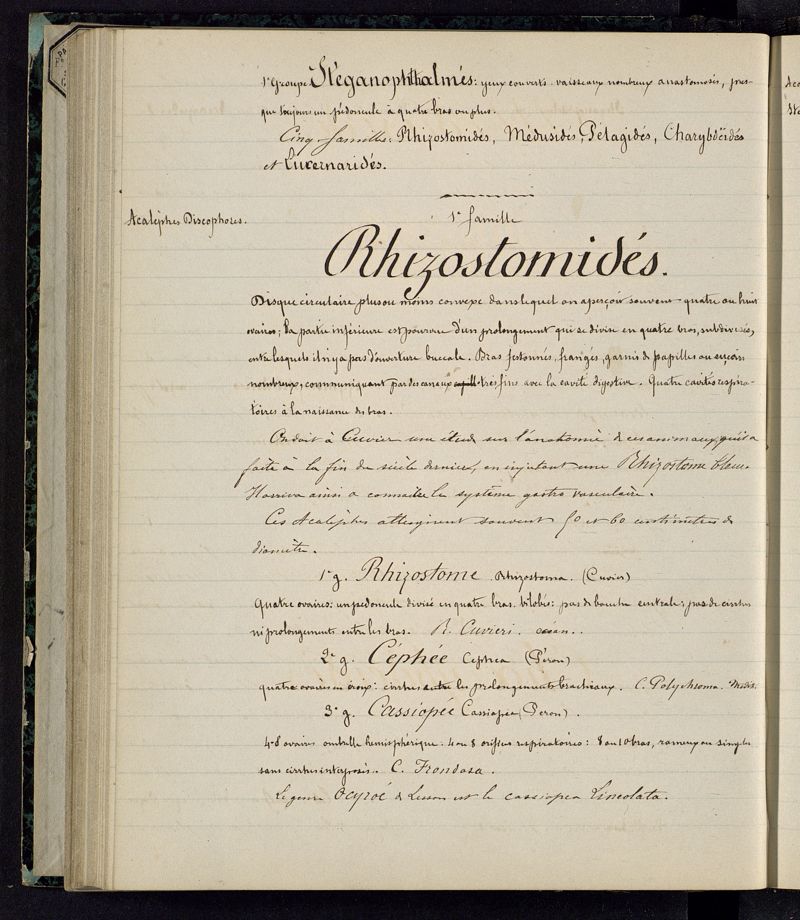 1er Groupe Stéganophthalmés: yeux couverts. vaisseaux nombreux anastomosés, pres-
que toujours un pédoncule à quatre bras ou plus.
Cinq familles: Rhizostomidés, Médusidés, Pélagidés, Charybdéidés
et Lucernaridés.
Acalèphes Discophores.
1e famille
Rhizostomidés.
Disque circulaire plus ou moins convexe dans lequel on aperçoit souvent quatre ou huit
ovaires; la partie inférieure est pourvue d'un prolongement qui se divise en quatre bras, subdivisés,
entre lesquels il n'y a pas d'ouverture buccale. Bras festonnés, frangés, garnis de papilles ou suçoirs
nombreux, communiquant par des canaux très fins avec la cavité digestive. Quatre cavités respira-
toires à la naissance des bras.
On doit à Cuvier une étude sur l'anatomie de ces animaux, qu'il a
faite à la fin du siècle dernier, en injectant une Rhizostome bleue.
Il arriva ainsi a connaitre le système gastro vasculaire.
Ces Acalèphes atteignent souvent 50 et 60 centimètres de
diamètre.
1er g. Rhizostome Rhizostoma. (Cuvier)
Quatre ovaires: un pédoncule divisé en quatre bras bilobés: pas de bouche centrale; pas de cirrhes
ni prolongements entre les bras. R. Cuvieri. océan.
2e g. Céphée Cephea (Péron)
quatre ovaires en croix: cirrhes entre les prolongements brachiaux. C. Polychroma. Médit.
3e g. Cassiopée Cassiopea (Peron).
4-8 ovaires ombrelle hémisphérique: 4 ou 8 orifices respiratoires: 8 ou 10 bras, rameux ou simples
sans cirrhes interposés. C. Frondosa.
Le genre Ocyroé de Lesson est le cassiopea Lineolata.